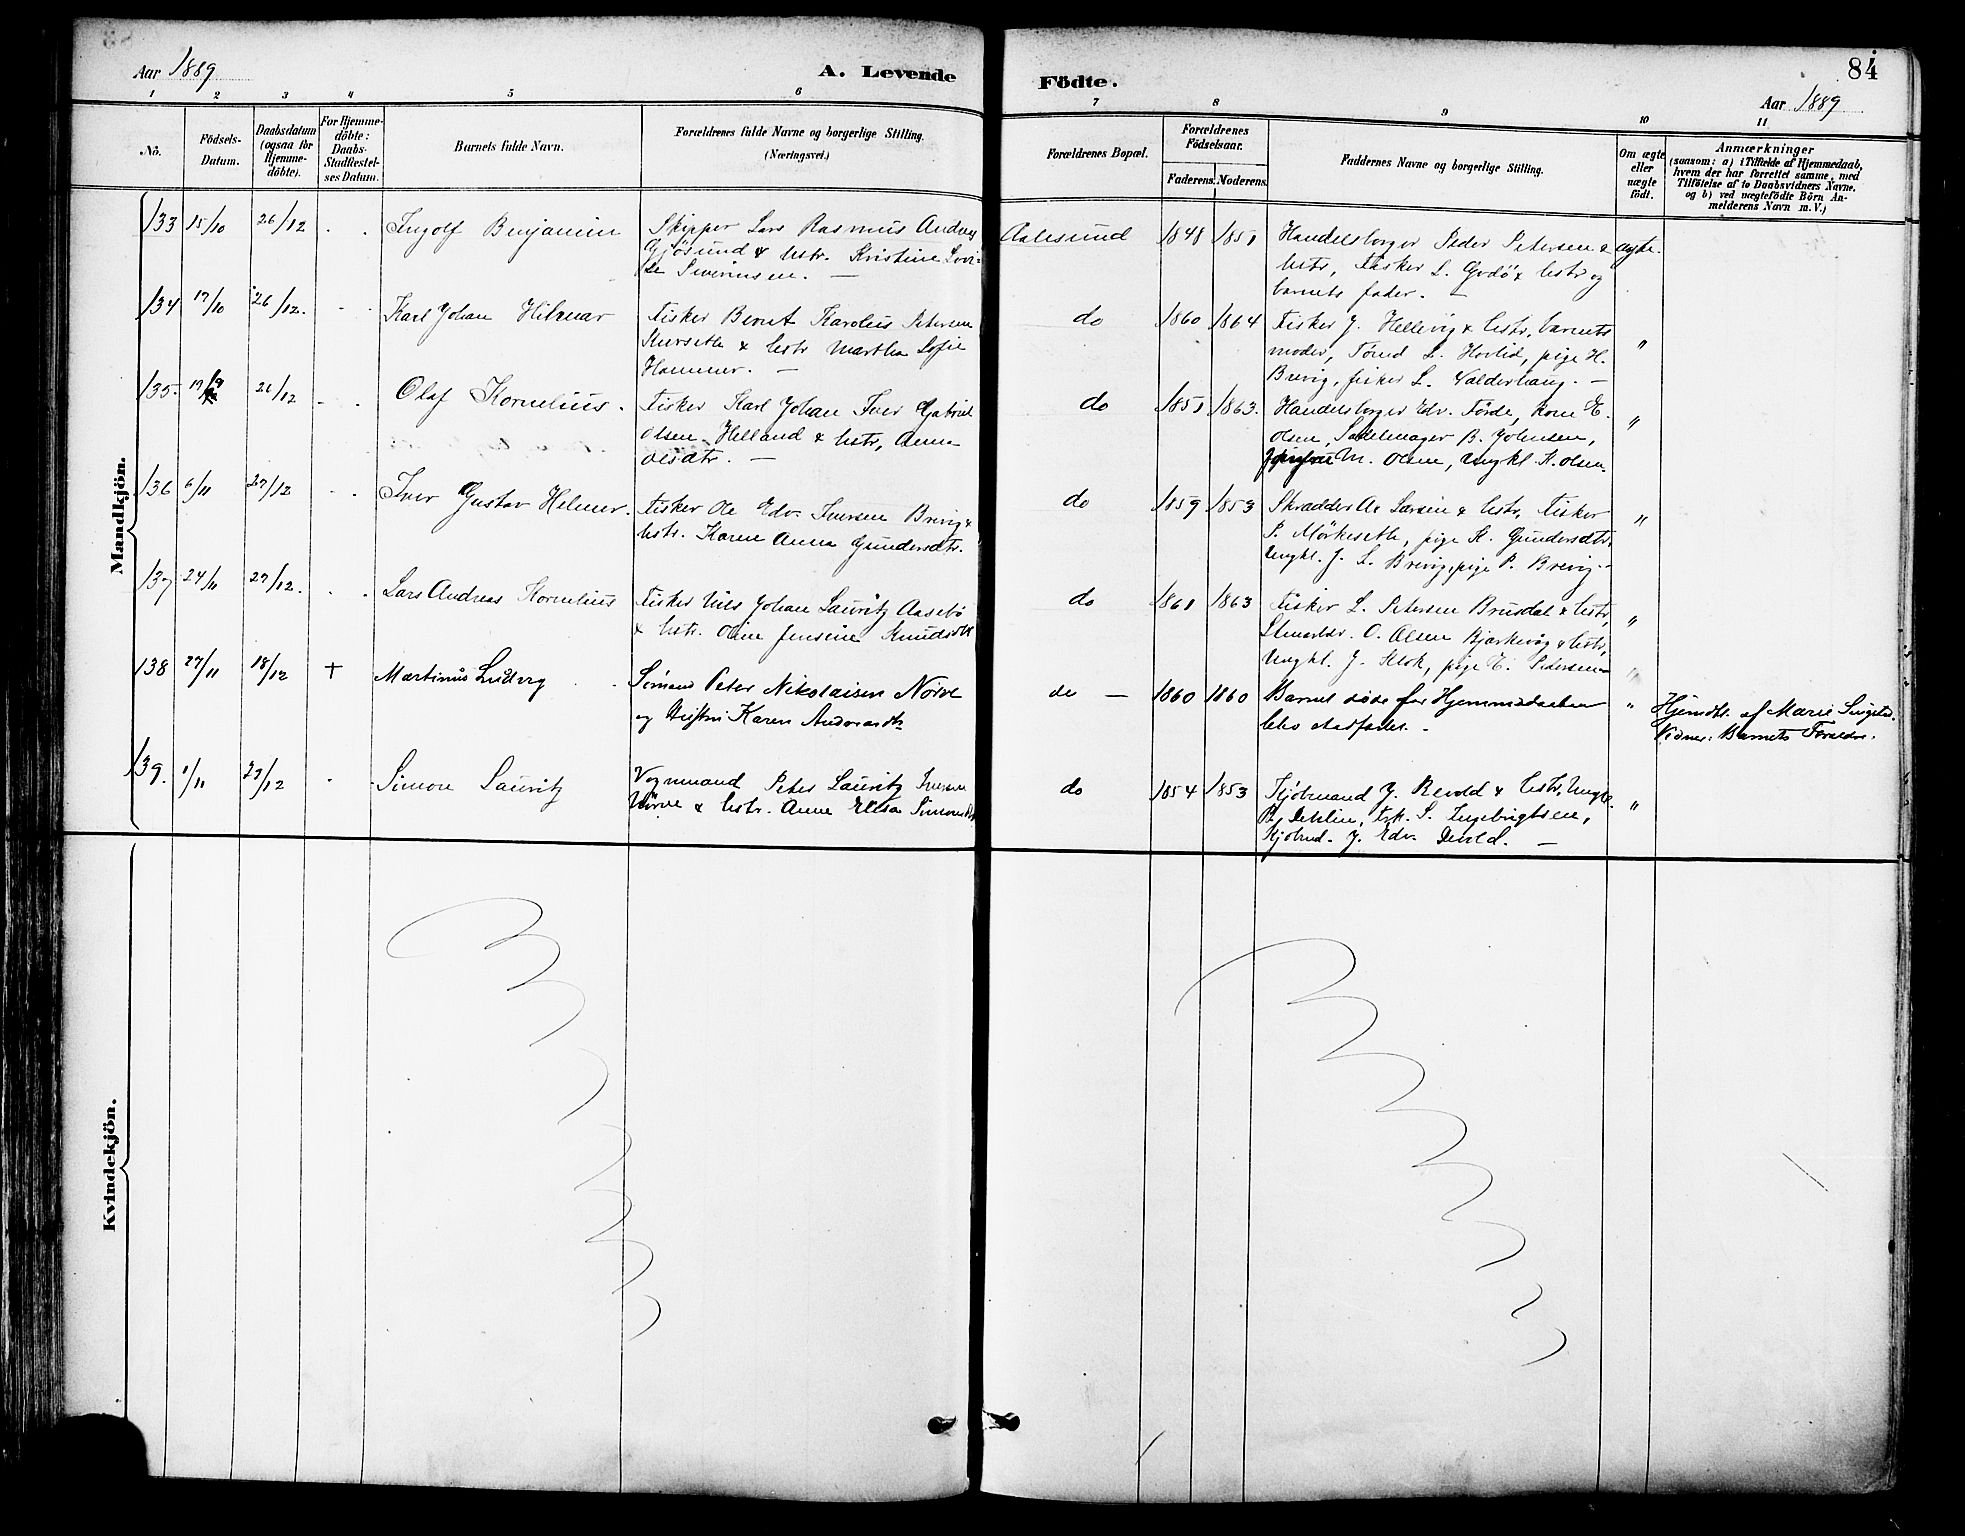 Aar 1889
A. Levende
Födte.
84
Aar 1889
1 2 3 4 5 6 7 8 9 10 11
No.
Födsels-
Datum.
Daabsdatum
(ogsaa for
Hjemme-
döbte).
For Hjemme-
döbte:
Daabs-
Stadfæstel-
ses Datum.
Barnets fulde Navn.
Forældrenes fulde Navne og borgerlige Stilling.
(Næringsvei.)
Forældrenes Bopæl.
Forældrenes
Födselsaar.
Faderens. Moderens.
Faddernes Navne og borgerlige Stilling.
Om ægte
eller
uægte
födt.
Anmærkninger
(saasom: a) i Tilfælde af Hjemmedaab,
hvem der har forrettet samme, med
Tilföielse af to Daabsvidners Navne,
og b) ved uægtefödte Börn An-
melderens Navn m. V.)
Mandkjön.
133 15/10 26/12 - - Ingolf Benjamin
Skipper Lars Rasmus Andreas
Gjösund & hstr. Kristine Lovi-
se Severinsen. —
Aalesund 1848 1851
Handelsborger Peder Petersen &
hstr, Fisker L. Godö & hstr og
barnets fader. —
ægte.
134 17/10 26/12. - - Karl Johan Hilmar
Fisker Bernt Karolius Petersen
& hstr Martha Sofie
Hammer. —
do 1860 1864
Fisker J. Hellevig & hstr, barnets
moder, L. Hovlid, pige H.
Brevig, fisker L. Valderhaug. —
"
135. 26/12 - - Olaf Kornelius.
Fisker Karl Johan Iver Gabriel
Olsen Helland & hstr, Anna
Olsdtr. —
do 1851 1863.
Handelsborger Edv. Förde, kone E.
Olsen, Sadelmager B. Johnsen,
M. Olsen, Ungkl K. Olsen
"
136 6/11 27/12 - - Iver Gustav Helmer.
Fisker Ole Edv. Iversen Brevig &
hstr. Karen Anna Gundersdtr.
do 1859 1853
Skrædder A. Larsen & hstr, Fisker
P. Mörkeseth, pige K. Gundersdtr,
Ungkl. J. L. Brevig, pige P. Brevig. -
"
137 24/11 27/12. - - Lars Andreas Kornelius
Fisker Nils Johan Lauritz Aasebö
& hstr. Oline Jensine Knudsdtr
do 1861 1863
Fisker L. Petersen Brusdal & hstr,
O. Olsen Bjørkevåg & hstr,
Ungkl. J. Klok, pige E. Pedersen
"
138 27/11 18/12 + Martinus Ludvig
Sömand Peter Nikolaisen Nörve
og Hustru Karen Andorsdtr
do — 1860 1860
Barnet döde för Hjemmedaaben
blev stadfæstet. -
"
Hjemdbt. af Marie
Vidner: Barnets Forældre.
139. 1/11 27/12 - Simon Lauritz
Vognmand Peter Lauritz Iversen
Nörve & hstr. Anne Elisa Simonsdtr
do 1854 1853
Kjöbmand J. Devold & hstr, Ungkl.
Dehlin, frk. S. Ingebrigtsen,
Kjöbmd. J. Edv. Devold. —
"
Kvindekjön.